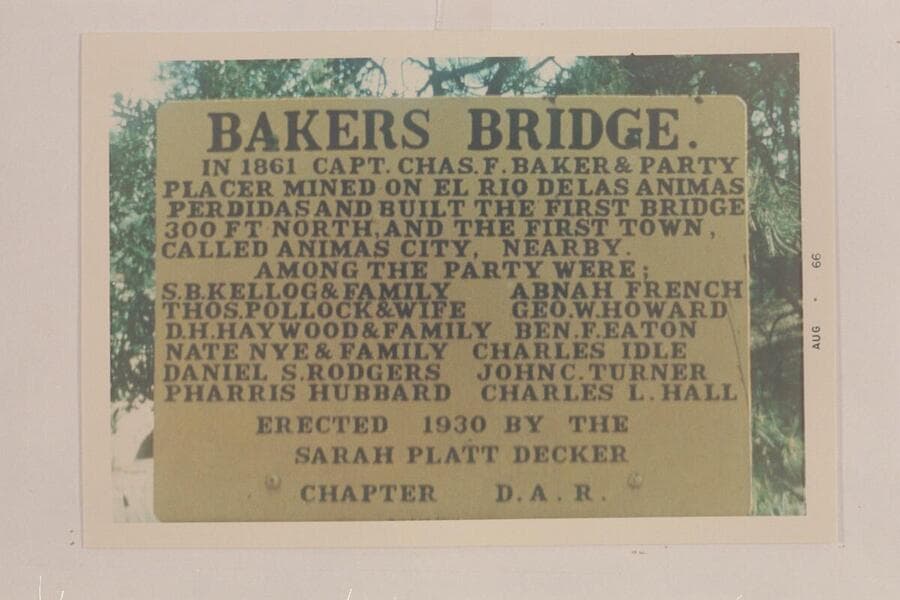 BAKERS BRIDGE.
IN 1861 CAPT. CHAS. F. BAKER & PARTY
PLACER MINED ON EL RIO DE LAS ANIMAS
PERDIDAS AND BUILT THE FIRST BRIDGE
300 FT NORTH, AND THE FIRST TOWN,
CALLED ANIMAS CITY, NEARBY.
AMONG THE PARTY WERE;
S.B. KELLOG & FAMILY ABNAH FRENCH
THOS. POLLOCK & WIFE GEO. W. HOWARD
D.H. HAYWOOD & FAMILY BEN. F. EATON
NATE NYE & FAMILY CHARLES IDLE
DANIEL S. RODGERS JOHN C. TURNER
PHARRIS HUBBARD CHARLES L. HALL
ERECTED 1930 BY THE
SARAH PLATT DECKER
CHAPTER D.A.R.
AUG • 66